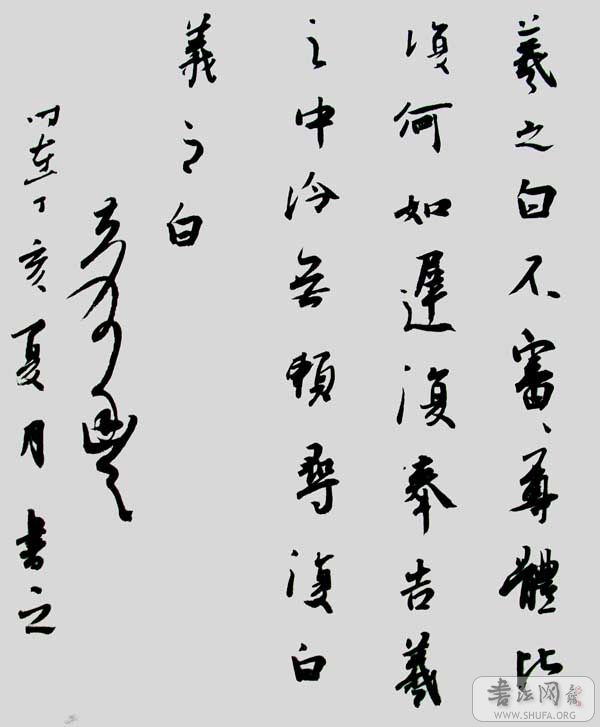 羲之白不審、尊體比
復何如遲復奉告羲
之中冷無賴尋復白
羲之白
时在丁亥夏月書之
书法网
WWW.SHUFA.ORG